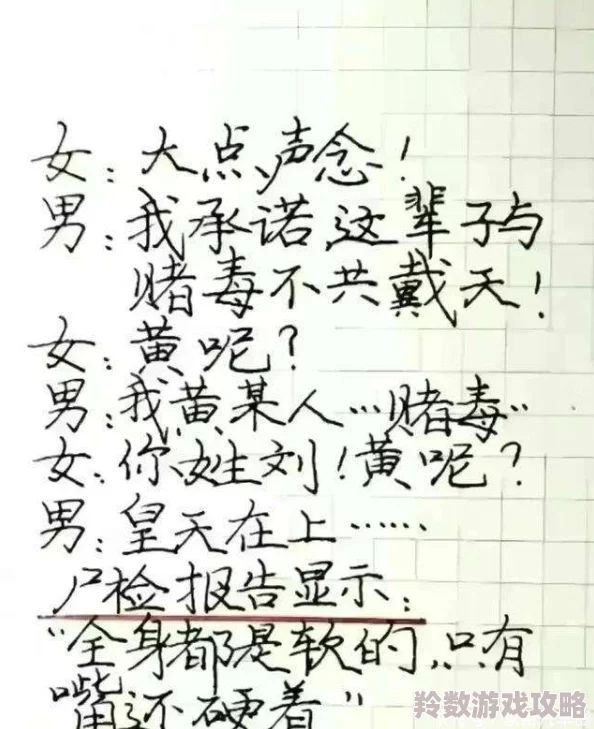 女：大点声念！
男：我承诺这辈子与
赌毒不共戴天！
女：黄呢？
男：我黄某人…赌毒..
女：你姓刘！黄呢？
男：皇天在上……
尸检报告显示：
“全身都是软的，只有
嘴还硬着”
羚数游戏攻略